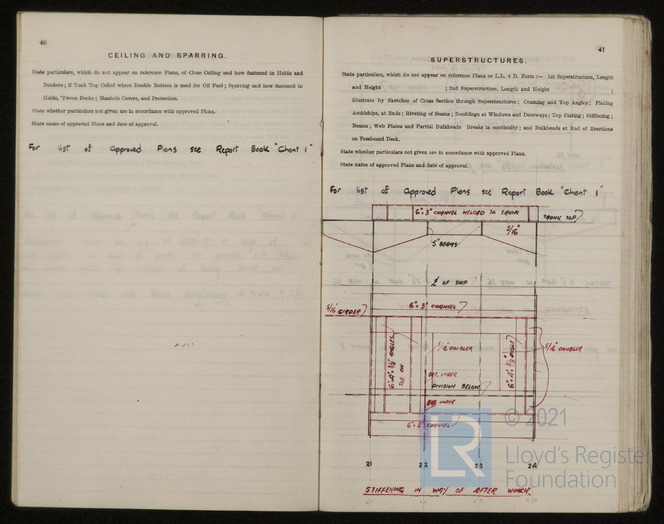 40
CEILING AND SPARRING.
State particulars, which do not appear on reference Plans, of Close Ceiling and how fastened in Holds and
Bunkers; if Tank Top Ceiled where Double Bottom is used for Oil Fuel; Sparring and how fastened in
Holds, 'Tween Decks; Manhole Covers, and Protection.
State whether particulars not given are in accordance with approved Plans.
State name of approved Plans and date of approval.
For list of Approved Plans see Report Book "Chant 1"
41
SUPERSTRUCTURES.
State particulars, which do not appear on reference Plans or L.L. 4 D. Form:— 1st Superstructure, Length
and Height ; 2nd Superstructure, Length and Height ;
illustrate by Sketches of Cross Section through Superstructures; Coaming and Top Angles; Plating
Amidships, at Ends; Riveting of Seams; Doublings at Windows and Doorways; Top Plating; Stiffening;
Beams; Web Plates and Partial Bulkheads Breaks in continuity; and Bulkheads at End of Erections
on Freeboard Deck.
State whether particulars not given are in accordance with approved Plans.
State name of approved Plans and date of approval.
For list of Approved Plans see Report Book "Chant 1"
6" x 3" CHANNEL WELDED TO TRUNK
TRUNK TOP
5/16"
5" BEAMS
℄ OF SHIP
6" x 3" CHANNEL
5/16" GIRDER
5/16" DOUBLER
5/16" DOUBLER
UNDER
DIVISION BELOW
UNDER
6" x 3" CHANNEL
21 22 23 24
STIFFENING IN WAY OF AFTER WINCH.
© 2021
LR
Lloyd's Register
Foundation